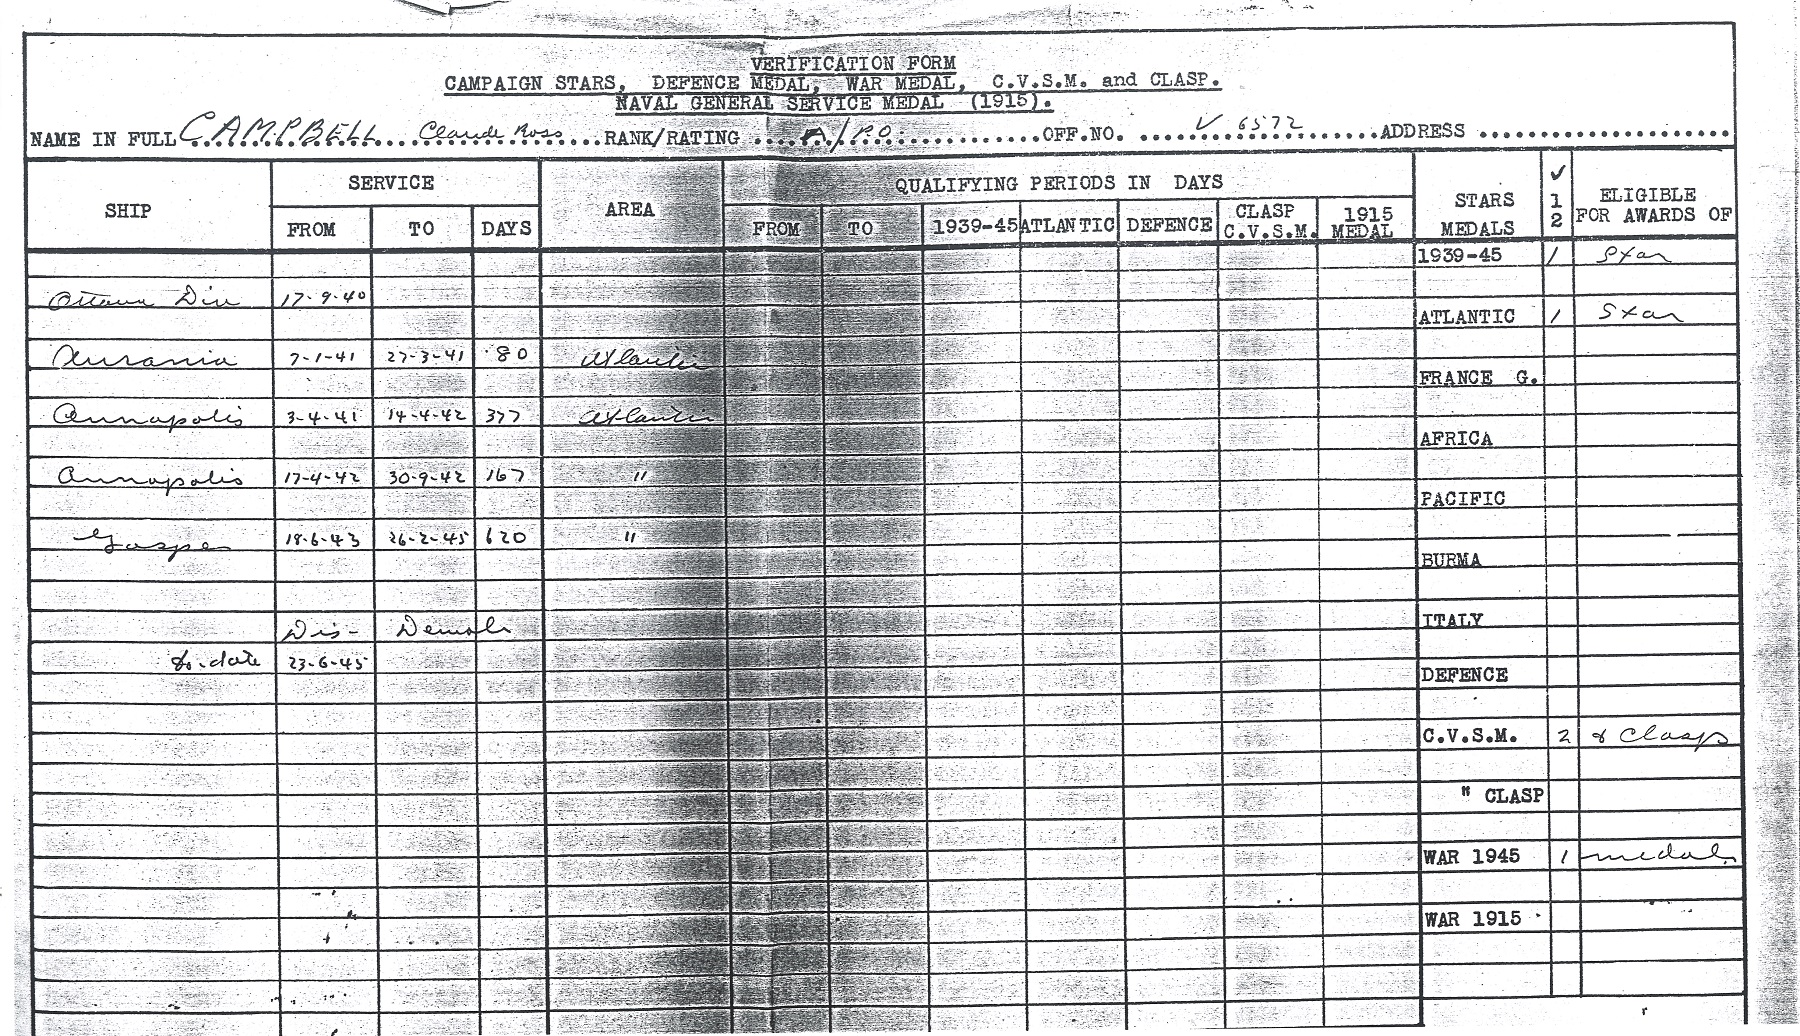 VERIFICATION FORM
CAMPAIGN STARS, DEFENCE MEDAL, WAR MEDAL, C.V.S.M. and CLASP.
NAVAL GENERAL SERVICE MEDAL (1915).
NAME IN FULL CAMPBELL Claude Ross RANK/RATING A/P.O. OFF.NO. V 6572 ADDRESS
SHIP SERVICE AREA QUALIFYING PERIODS IN DAYS STARS MEDALS ✓ 1 2 ELIGIBLE FOR AWARDS OF
FROM TO DAYS FROM TO 1939-45 ATLANTIC DEFENCE CLASP C.V.S.M. 1915 MEDAL
1939-45 1 Star
Ottawa Div 17-9-40
ATLANTIC 1 Star
Aurania 7-1-41 27-3-41 80 Atlantic
FRANCE G.
Annapolis 3-4-41 14-4-42 377 Atlantic
AFRICA
Annapolis 17-4-42 30-9-42 167 "
PACIFIC
Gaspe 18-6-43 26-2-45 620 "
BURMA
Dis- Demob ITALY
to-date 23-6-45
DEFENCE
C.V.S.M. 2 & Clasp
" CLASP
WAR 1945 1 medal
WAR 1915